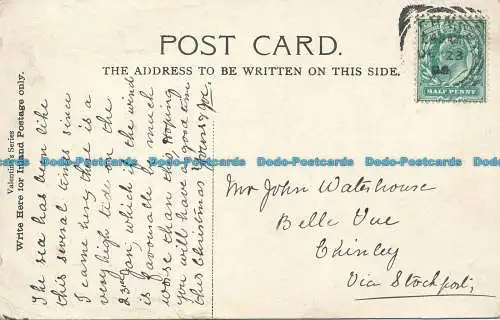 POST CARD.
THE ADDRESS TO BE WRITTEN ON THIS SIDE.
Valentine's Series
Write Here for Inland Postage only.
The sea has been like
this several times since
I came here, there is a
very high tide on the
23rd Jan, which if the wind
is favourable be much
worse than this, hoping
you will have a good time
this Christmas Yours
HALF PENNY
23
Mr John Waterhouse
Belle Vue
Chinley
Via Stockport,
Dodo-Postcards Dodo-Postcards Dodo-Postcards Dodo-Postcards Dodo-Postcards